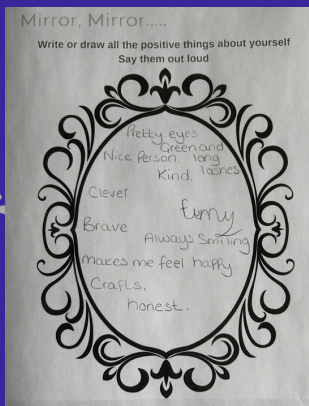 Mirror, Mirror.....
Write or draw all the positive things about yourself
Say them out loud
Pretty eyes
Green and
Nice Person. long
Kind. lashes
Clever.
funny
Brave
Always Smiling
makes me feel happy.
Crafts.
honest.